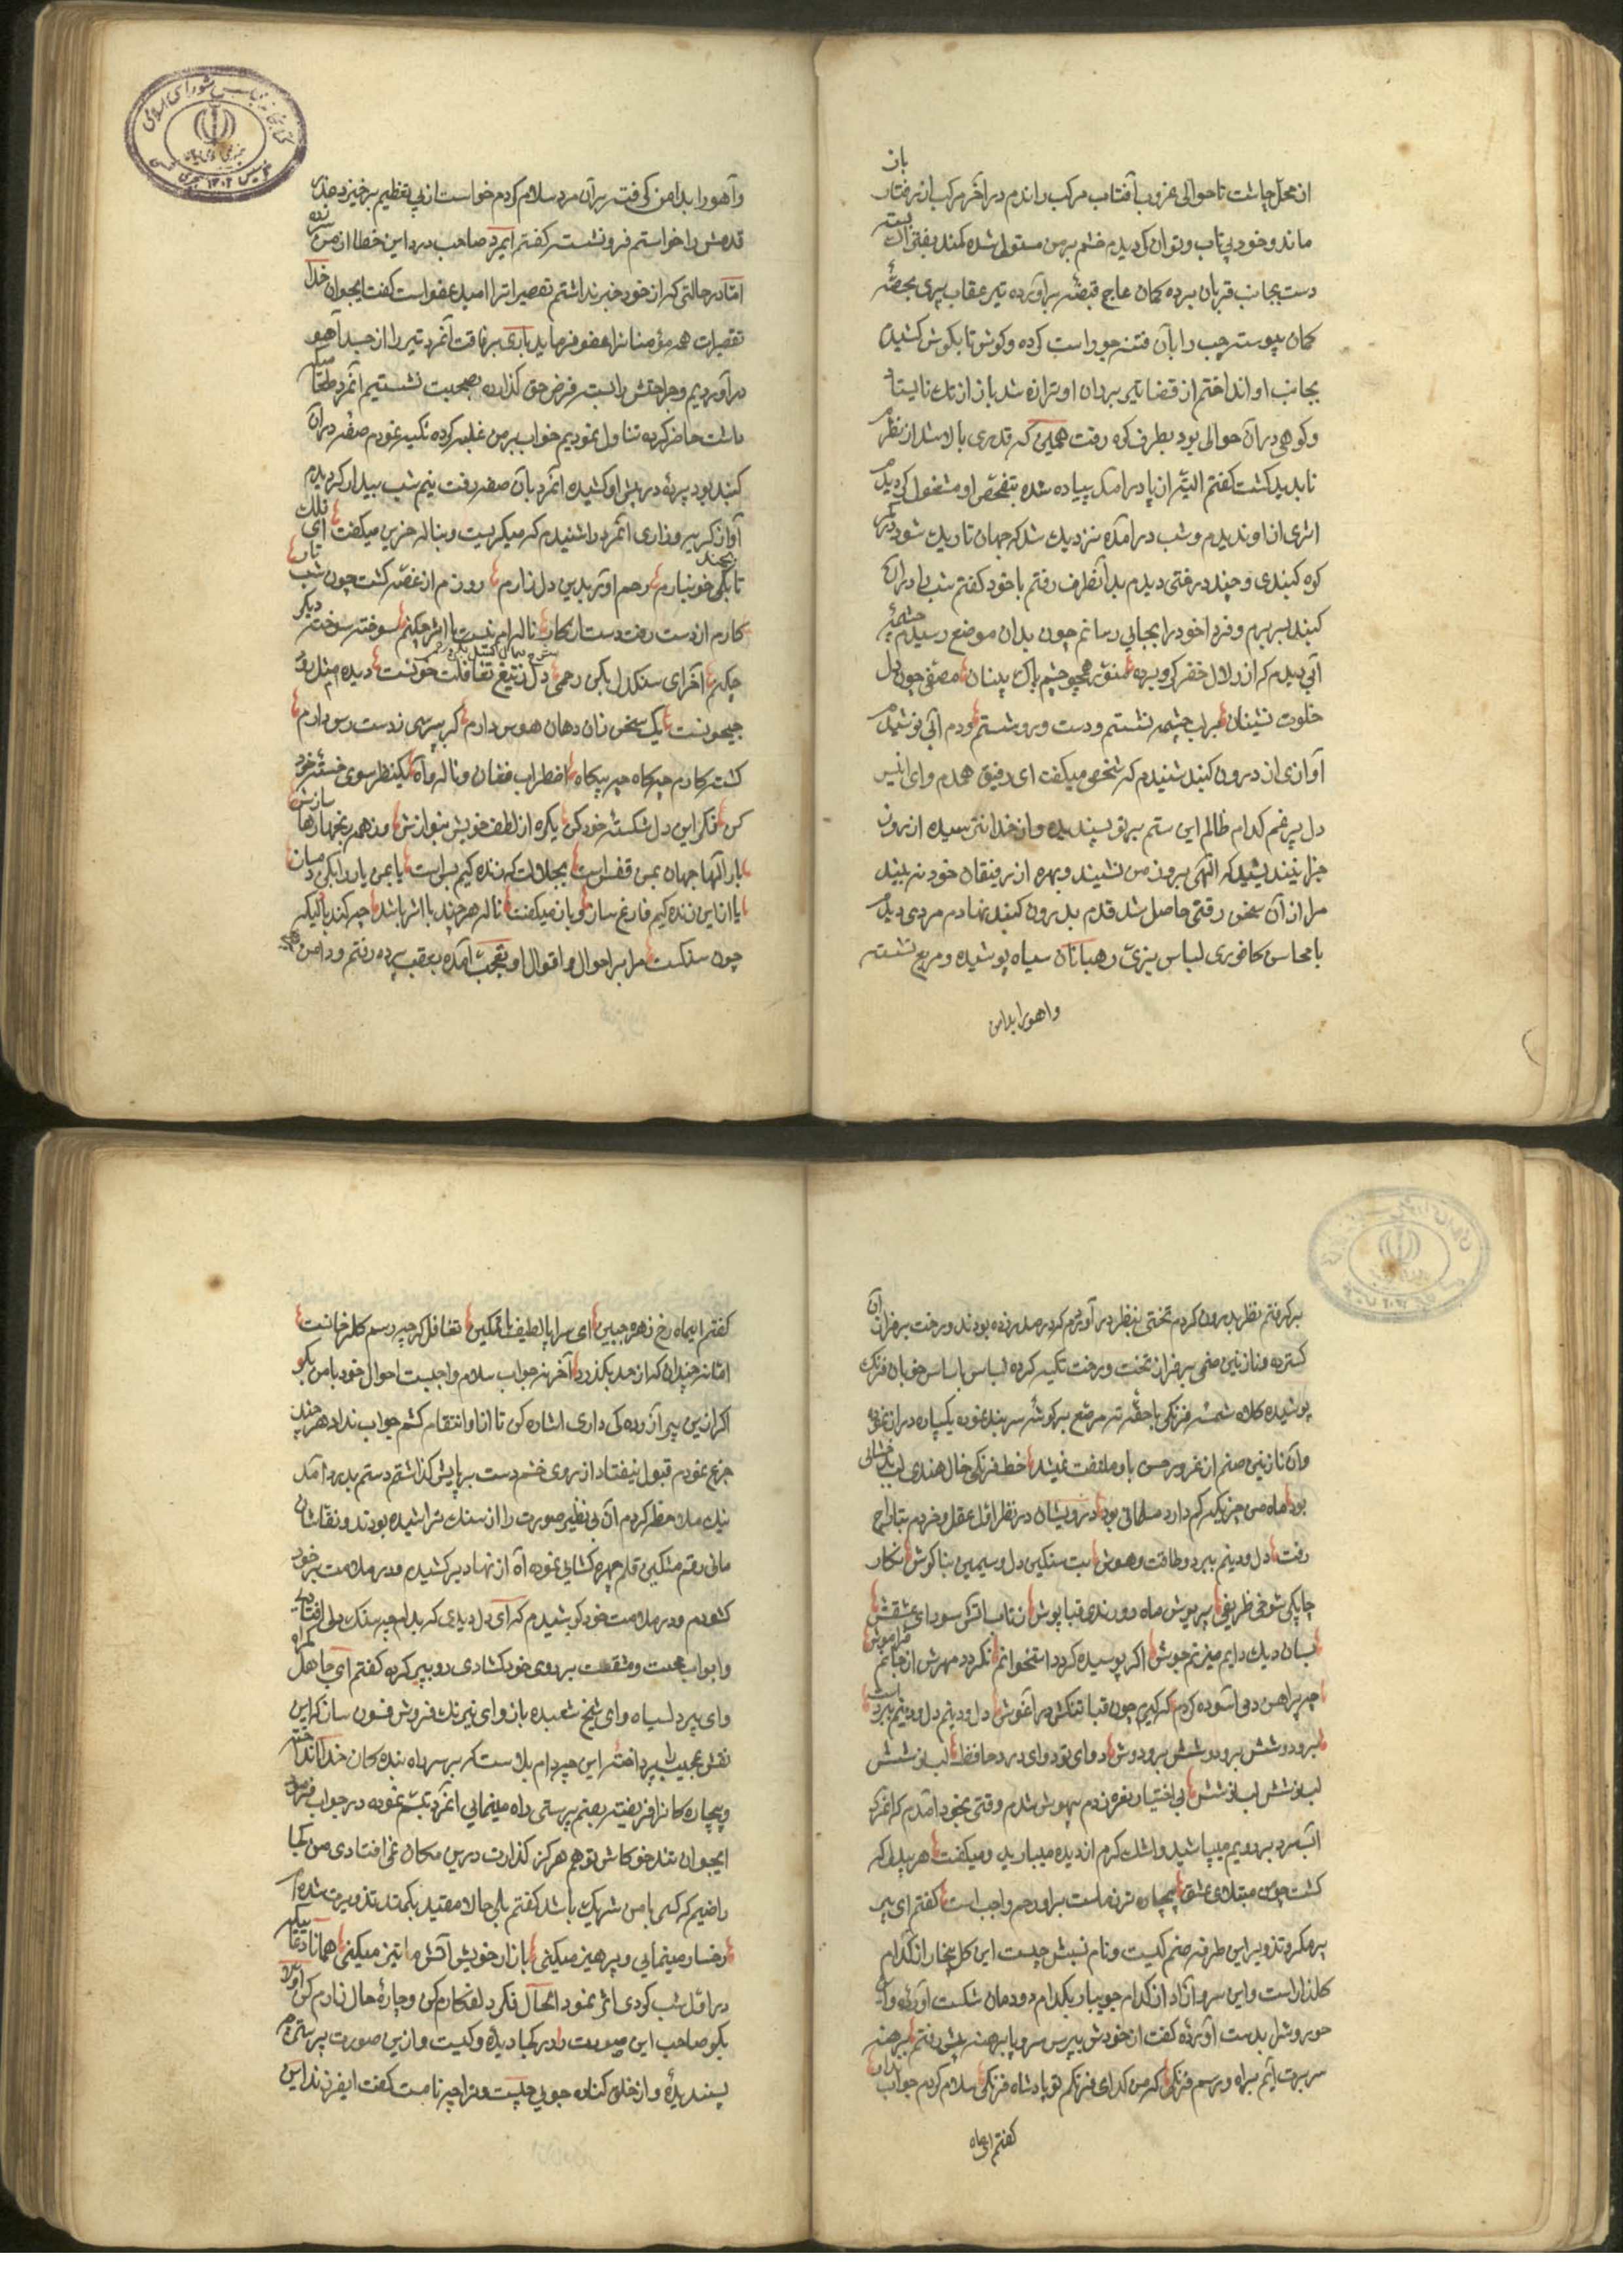 از محل چاشت تا حوالی غروب آفتاب مرکب راندم در آخر مرکب از رفتار باز
ماند و خود بی تاب و توان گردیدم خشم بر من مستولی شده کمند بفتراک بسته
دست بجانب قربان برده کمان عاج قبضه برآورده تیر عقاب پری بچصه
کمان پیوسته چپ را بآن فتنه جو راست کرده و گوش تا بگوش کشیدم
بجانب او انداختم از قضا تیر بر ران او ترازه شد باز از تک نایستاد
و کوهی در آن حوالی بود بطرف کوه رفت همین که قدری بالا شد از نظرم
ناپدید گشت گفتم البته از پا درآمد پیاده شده بتفحص او مشغول گردیدم
اثری از او ندیدم و شب درآمده نزدیک شد که جهان تاریک شود در کمر
کوه گنبدی و چند درختی دیدم بدآنطرف رفتم با خود گفتم شب را در آن
گنبد بسر برم و فردا خود را بجایی رسانم چون بدان موضع رسیدم چشمهٔ
آبی دیدم که از زلال خضر گرو برده منور همچو چشم پاک بینان مصفی چون دل
خلوت نشینان بر لب چشمه نشستم و دست و رو شستم و دم آبی نوشیدم
آوازی از درون گنبد شنیدم که شخصی میگفت ای رفیق همدم و ای انیس
دل پر غم کدام ظالم این ستم بر تو پسندیده و از خدا نترسیده از برون
مرا از آن سخن رقتی حاصل شد قدم بدرون گنبد نهادم مردی دیدم
با محاسن کافوری لباس بزی رهبانان سیاه پوشیده و مربع نشسته
و اهو را بدامن
و آهو را بدامن گرفته بر آن مرد سلام کردم خواست از پی تعظیم برخیزد عذر
قدمش را خواستم فرو نشست گفتم ایمرد صاحب درد این خطا از من سر زده
اما در حالتی که از خود خبر نداشتم تقصیر است امید عفو است گفت ایجوان خدا
تقصیرات همه مؤمنان را عفو فرماید باری برفاقت آنمرد تیر را از جسد آهو
درآوردیم و جراحتش را بست فرض حق گذارده بصحبت نشستیم آنمرد طعامیکه
داشت حاضر کرده تناول نمودیم خواب بر من غلبه کرده تکیه نمودم صفه در آن
گنبد بود پرده در پیش او کشیده آنمرد بآن صفه رفت نیم شب بیدار گردیدم
آواز گریه و زاری آنمرد را شنیدم که میگریست و بناله حزین میگفت ای فلک
تا بکی خونبارم رحم آور بدین دل زارم روزم از غصه گشت چون شب تار
کارم از دست رفت دست از کار ناله ام نیست با اثر چکنم سوخته سوخته دیگر
چکنم آخر ای سنگدل بکن رحمی دل ز تیغ تغافلت خونست دیده ام مثل رود
جیحونست یک سخن زان دهان هوس دارم گر بپرسی ز دست رس دارم
گشته کارم چه گاه چه بیگاه اضطراب فغان و ناله و آه یکنظر سوی خسته خود
کن فکر این دل شکسته خود کن یکره از لطف خویش بنوازش وز همه رنجها رها سازش
بار الها جهان بمن قفس است بجلالت که زنده گیم بس است یا بمن یار را بکن دمساز
یا از این زنده گیم فارغ ساز و باز میگفت ناله هر چند با اثر باشد چه کند با کسیکه
چون سنگست مرا بر احوال و اقوال او تعجب آمده بعقب پرده رفتم و دامن
برگرفتم نظر بدرون کردم تختی بنظر درآوردم که در صدر زده بودند و رخت بر فراز آن
گسترده و نازنین صنمی بر فراز تخت و رخت تکیه کرده لباس باساس خوبان فرنگ
پوشیده کلاه شمسه فرنگی باجقه مرصع بر گوشه سر بند نموده
و آن نازنین صنم از غرور حسن باو ملتفت نمیشد خط فرنگی خال هندی لب بدخشانی
بود ماه من چیزیکه کم دارد مسلمانی بود درویشان در نظر اول عقل و خردم بتاراج
رفت دل و دینم ببرد و طاقت و هوش بت سنگین دل و سیمین بناگوش نگار
چابکی شوخی ظریفی پریوش ماه و رندی قباپوش ز تاب آتش سودای عشقش
بسان دیک دایم میزنم جوش اگر پوسیده گردد استخوانم نگردد مهرش از جانم فراموش
چه پیراهن دمی آسوده گردم گر گیرم چون قبا تنگش در آغوش دل و دینم دل و دینم ببرد است
برو دوشش برو دوشش برو دوش دوای تو دوای درد حافظ لب نوشش
لب نوشش لب نوشش بی اختیار نعره زدم بیهوش شدم وقتی بخود آمدم که آنمرد
آب سرد بر رویم میپاشید و اشک گرم از دیده میبارید و میگفت هر بیدل که
گشت چون مبتلای عشق بیچاره تر ز ماست بر او رحم واجب است گفتم ای پیر
پر مکر و تزویر این طرفه صنم کیست و نام نسبش چیست این گل بیخار از کدام
گلذار است و این سرو آزاد از کدام جویبار بکدام دودمان شکست آورده و این
حوروش را بدست آورده گفت از خودش بپرس سر و پا برهنه پیش رفتم برهنه
سر برت آیم براه و رسم فرنگی که من گدای فرنگم تو پادشاه فرنگی سلام کردم جواب نداد
گفتم ای ماه
گفتم ایماه رخ زهره جبین ای سراپا لطیف با تمکین تغافل گر چه رسم گلرخانست
اما نه چندان که از حد بگذرد آخر نه جواب سلام واجبست احوال خود با من بگو
اگر از این پیر آزرده گی داری اشاره کن تا از او انتقام کشم جواب نداد هر چند
جزع نمودم قبول نیفتاد از روی خشم دست بر پایش گذاشتم دستم بدرد آمد
نیک ملاحظه کردم آن بی نظیر صورت را از سنگ تراشیده بودند و نقاشان
مانی رقم مشکین قلم چهره گشایی نموده آه از نهاد برکشیدم و در ملامت بر خود
گشودم و در ملامت خود کوشیدم که ای دل دیدی که بدام چه سنگ دلی افتاده
و ابواب محنت و مشقت بر روی خود گشادی رو به پیر کرده گفتم ای جاهل گمراه
و ای پیر دلسیاه و ای شیخ شعبده باز و ای نیرنگ فروش فسون ساز که این
نقش عجیب را پرداخته این چه دام بلاست که بر سر راه بنده گان خدا انداخته
و بیچاره گان را فریفته بصنم پرستی راه مینمایی آنمرد تبسم نموده در جواب فرمود
ایجوان تند خو کاش تو هم هرگز گذارت درین مکان نمی افتادی من کجا
راضیم که کسی با من شریک باشد گفتم بلی حالا مقید بکمند تذویرت شده ام
رخسار مینمایی و پرهیز میکنی بازار خویش آتش ما تیز میکنی همانا دعاییکه
در اول شب کردی اثر نمود الحال فکر دلفکارم کن و چارهٔ حال زارم کن
بگو صاحب این صورت را در کجا دیدهٔ و کیست و از این صورت پرستی چه
پسندیدهٔ و از خلق کناره جویی چیست و ترا چه نامست گفت ایفرزند این